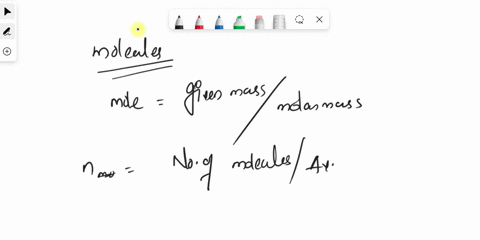 molecules
mole = given mass / molar mass
n = No. of molecules / Av.